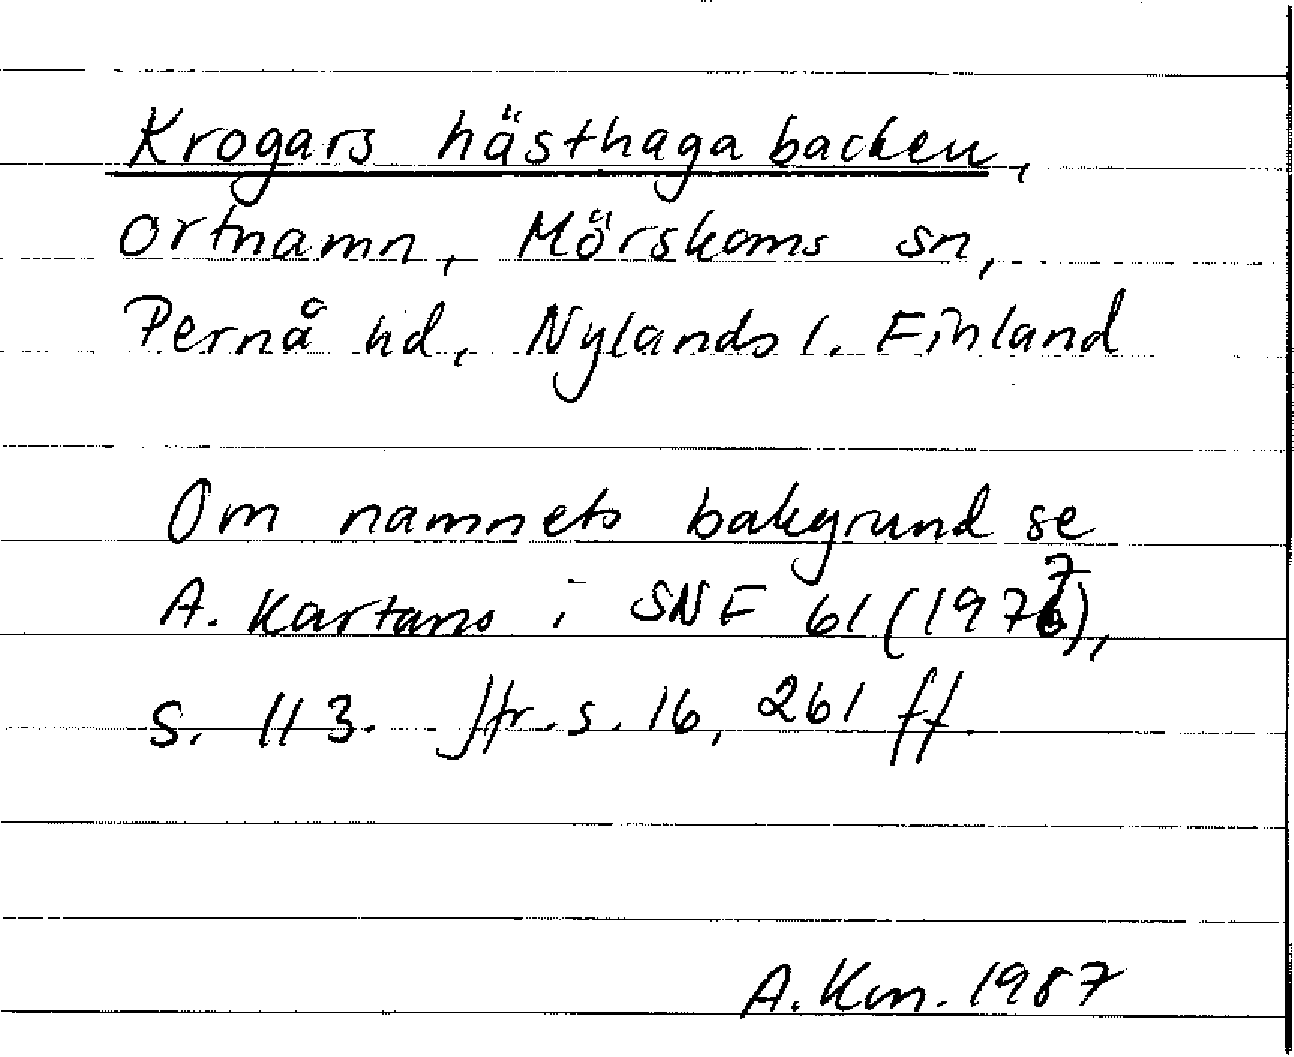 Krogars hästhaga backen,
Ortnamn, Mörskoms sn,
Pernå hd, Nylands l. Finland
Om namnets bakgrund se
A. Kartano i SNF 61 (1977),
s. 113. Jfr. s. 16, 261 ff.
A. Kn. 1987